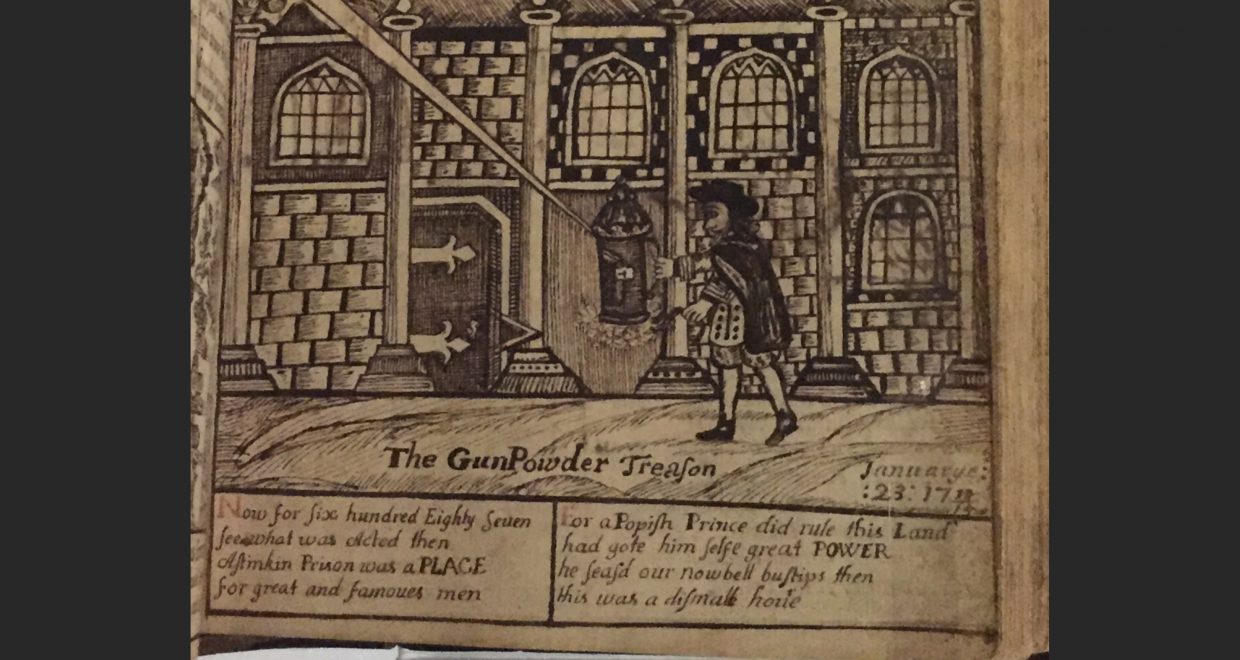 The GunPowder Treason
Januarye:
:23:17
Now for six hundred Eighty Seuen
see what was Acted then
A stinkin Prison was a PLACE
for great and famoues men
For a Popish Prince did rule this Land
had gote him selfe great POWER
he seasd our nowbell bustips then
this was a dismall houre